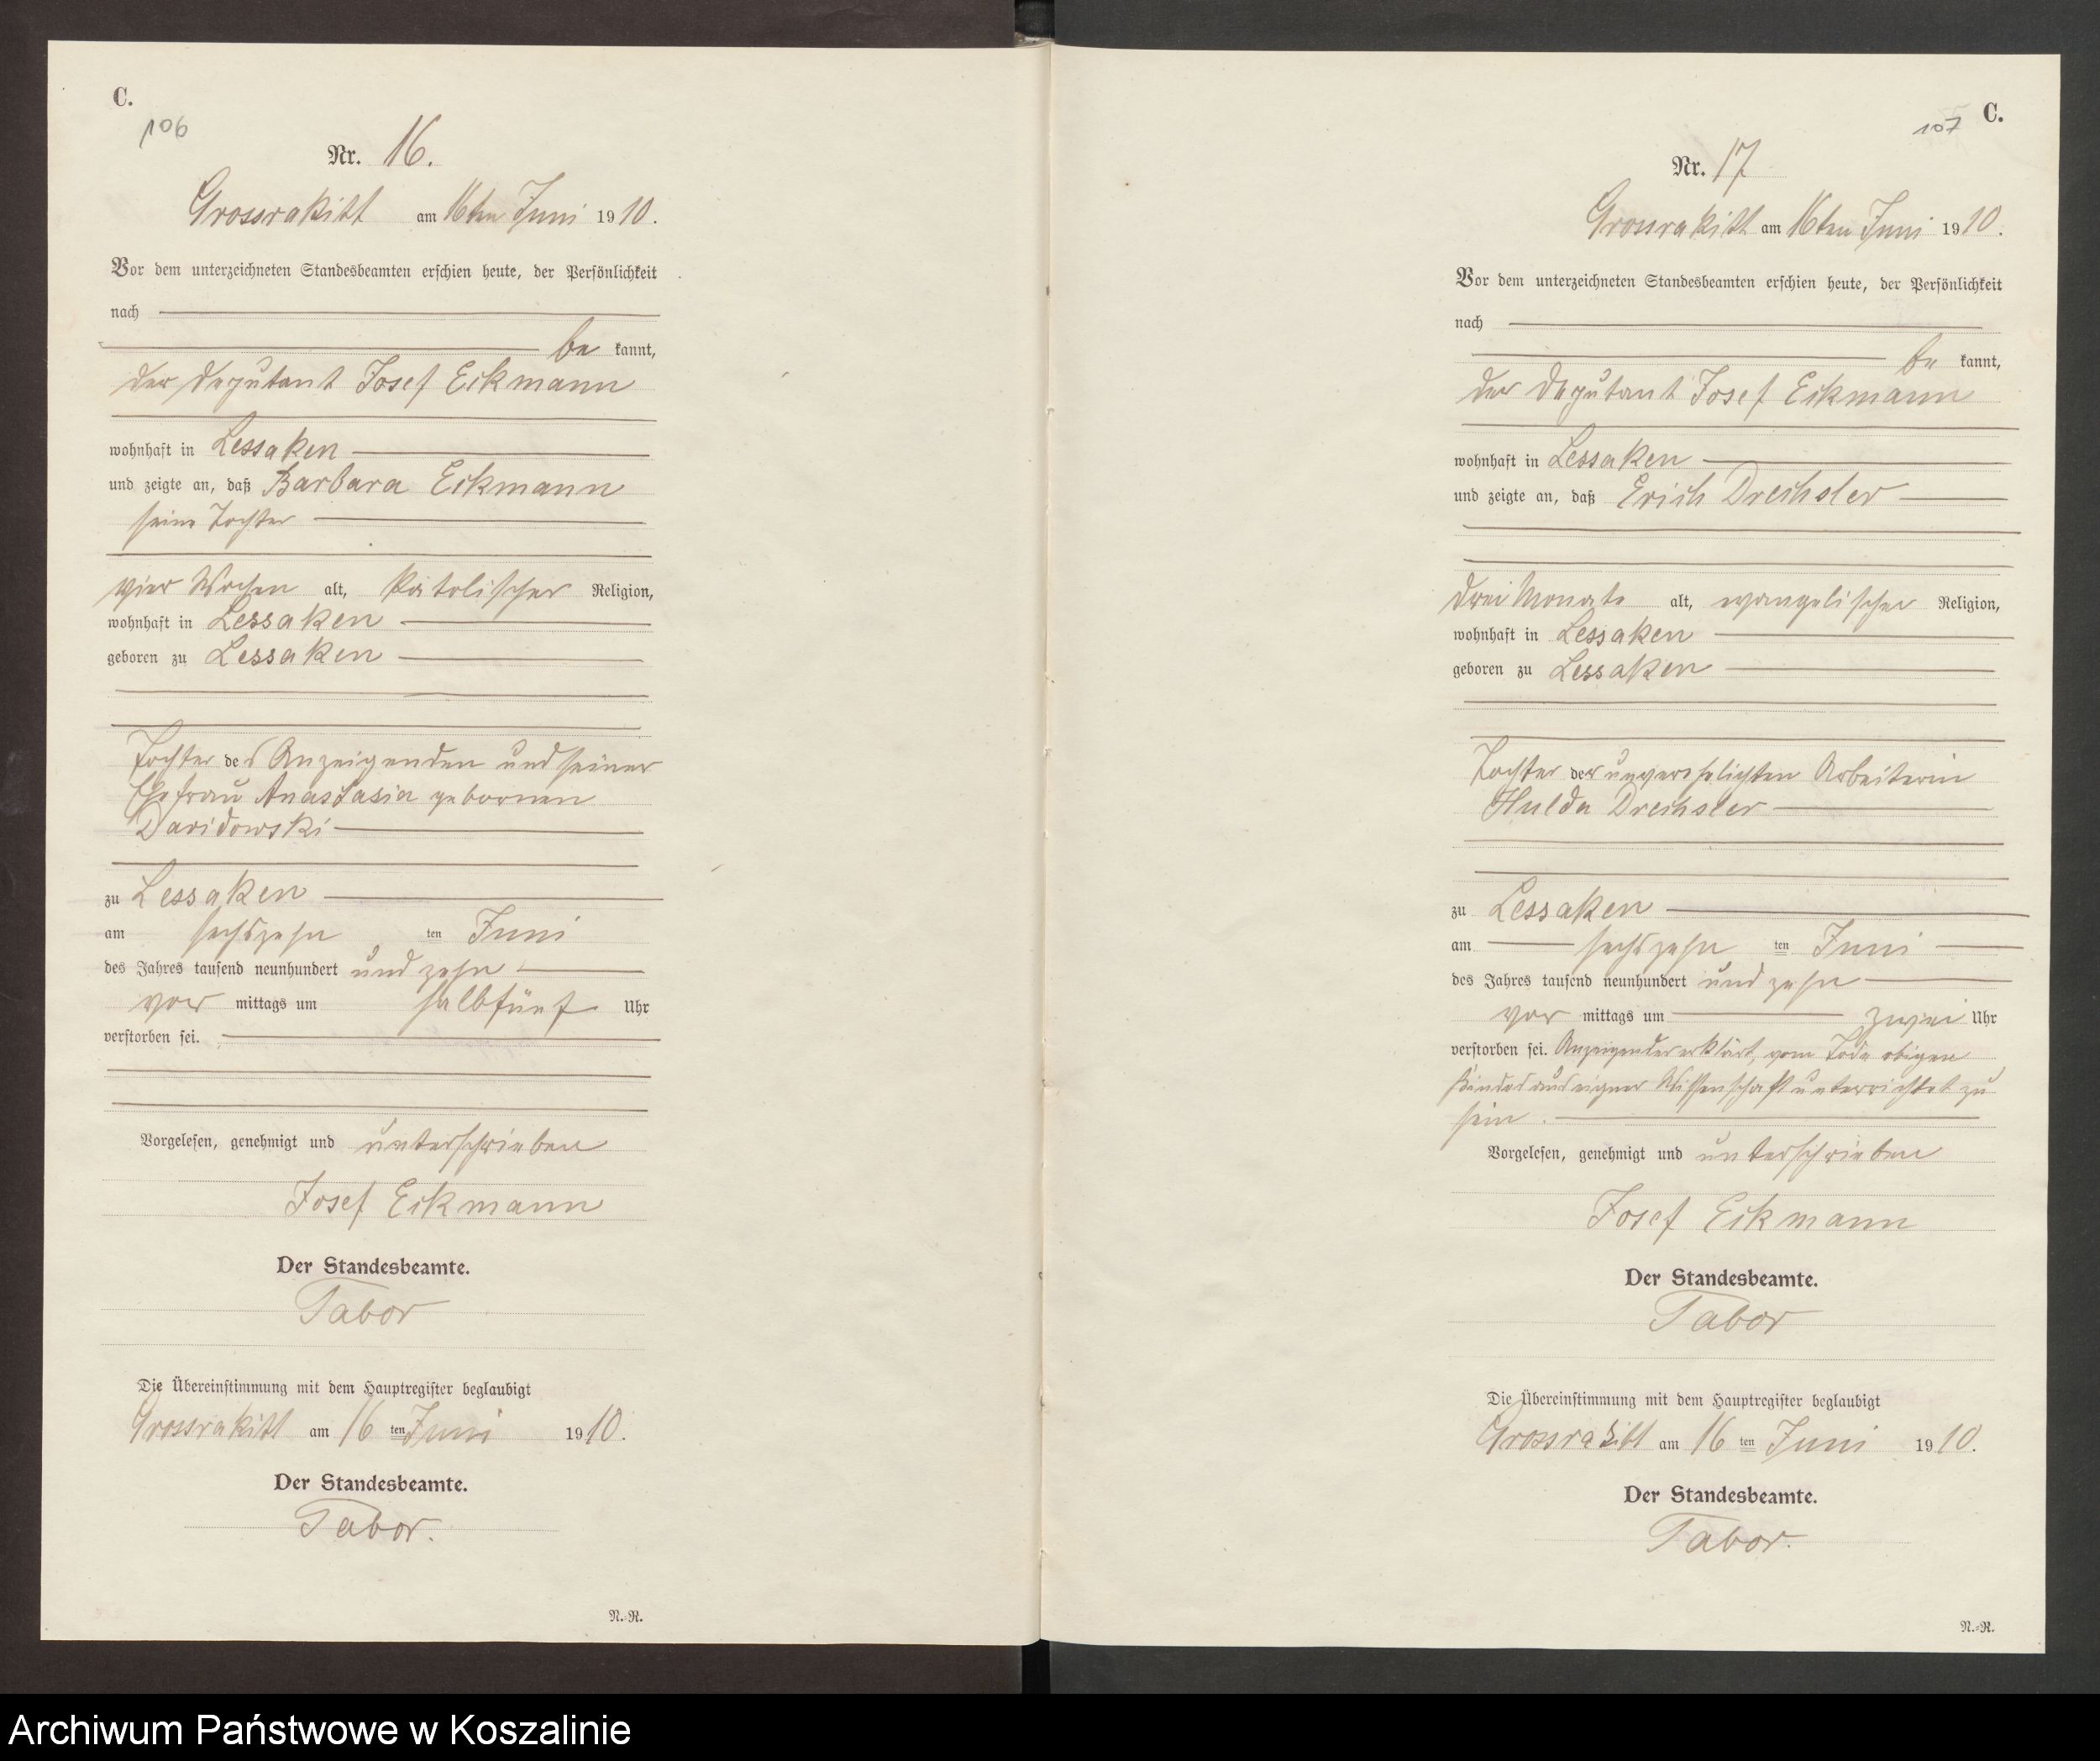 C.
106
Nr. 16.
Grossrakitt am 16ten Juni 1910.
Vor dem unterzeichneten Standesbeamten erschien heute, der Persönlichkeit
nach
be kannt,
der Deputant Josef Eikmann
wohnhaft in Lessaken
und zeigte an, daß Barbara Eikmann
seine Tochter
vier Wochen alt, katolischer Religion,
wohnhaft in Lessaken
geboren zu Lessaken
Tochter des Anzeigenden und seiner
Ehefrau Anastasia gebornen
Daridowski
zu Lessaken
am sechszehn ten Juni
des Jahres tausend neunhundert und zehn
vor mittags um halbfünf Uhr
verstorben sei.
Vorgelesen, genehmigt und unterschrieben
Josef Eikmann
Der Standesbeamte.
Tabor
Die Übereinstimmung mit dem Hauptregister beglaubigt
Grossrakitt am 16 ten Juni 1910.
Der Standesbeamte.
Tabor.
N.-R.
107
C.
Nr. 17
Grossrakitt am 16ten Juni 1910.
Vor dem unterzeichneten Standesbeamten erschien heute, der Persönlichkeit
nach
be kannt,
der Deputant Josef Eikmann
wohnhaft in Lessaken
und zeigte an, daß Erich Drechsler
drei Monate alt, evangelischer Religion,
wohnhaft in Lessaken
geboren zu Lessaken
Tochter der unverehelichten Arbeiterin
Hulda Drechsler
zu Lessaken
am sechszehn ten Juni
des Jahres tausend neunhundert und zehn
vor mittags um zwei Uhr
verstorben sei. Anzeigender erklärt, vom Tode obigen
Kindes aus eigner Wissenschaft unterrichtet zu
sein.
Vorgelesen, genehmigt und unterschrieben
Josef Eikmann
Der Standesbeamte.
Tabor
Die Übereinstimmung mit dem Hauptregister beglaubigt
Grossrakitt am 16 ten Juni 1910.
Der Standesbeamte.
Tabor.
N.-R.
Archiwum Państwowe w Koszalinie